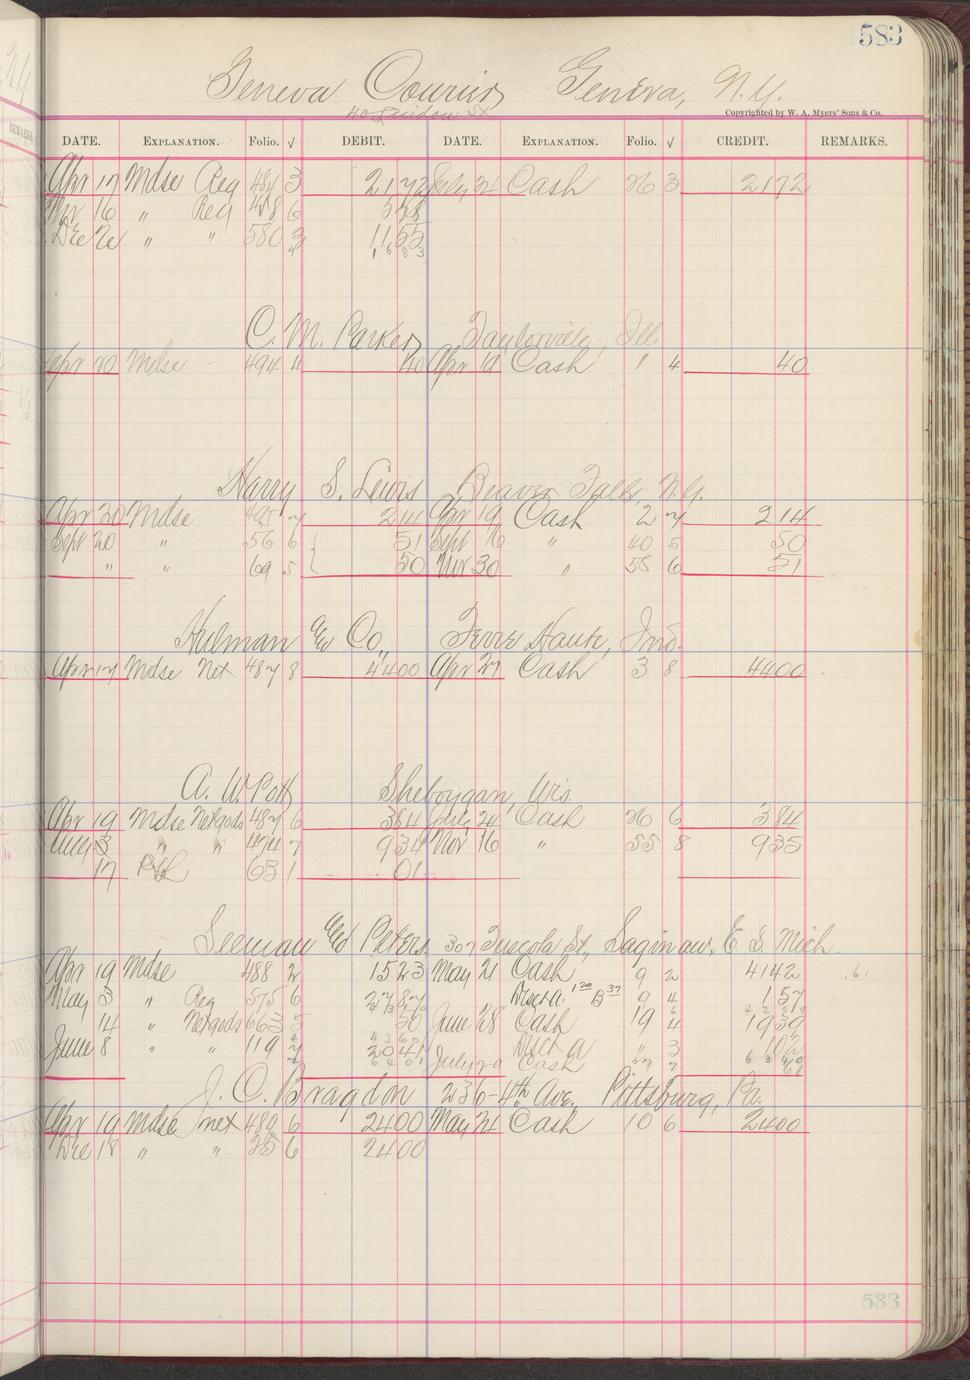 583
Geneva Courier Geneva, N.Y.
Copyrighted by W. A. Myers' Sons & Co.
DATE. EXPLANATION. Folio. √ DEBIT. DATE. EXPLANATION. Folio. √ CREDIT. REMARKS.
Apr 17 Mdse Reg 484 3 2172 July 31 Cash 26 3 2172
Nov 16 " Reg 418 6 578
Dec 20 " " 580 3 1155
C. M. Parker, Taylorville, Ill.
Apr 20 Mdse 494 4 40 Apr 19 Cash 1 4 40
Harry S. Lewis Beaver Falls, N.Y.
Apr 20 Mdse 495 7 214 Apr 19 Cash 2 7 214
Sept 20 " 56 6 51 Sept 16 " 40 5 50
" " 69 5 50 Nov 30 " 55 6 51
Hulman & Co., Terre Haute, Ind.
Apr 17 Mdse Net 487 8 4400 Apr 27 Cash 3 8 4400
A. W. Pott Sheboygan, Wis.
Apr 19 Mdse Netgods 487 6 384 July 24 Cash 26 6 384
Aug 3 " " 474 7 934 Nov 16 " 55 8 935
17 P&L 63 1 01
Seeman & Peters 307 Tuscola St., Saginaw, E. S. Mich.
Apr 19 Mdse 488 2 1523 May 21 Cash 9 2 4142 .61
May 3 " Reg 575 6 2787 " Disct a. 1 20 B 37 9 4 157
14 " Netgods 663 5 50 June 28 Cash 19 4 1939
June 8 " " 119 7 2041 " Disct a " 3 102
July 29 Cash 27 7 61
J. C. Bragdon 236-4th Ave. Pittsburg, Pa.
Apr 19 Mdse net 489 6 2400 May 31 Cash 10 6 2400
Dec 18 " " 25 6 2400
583